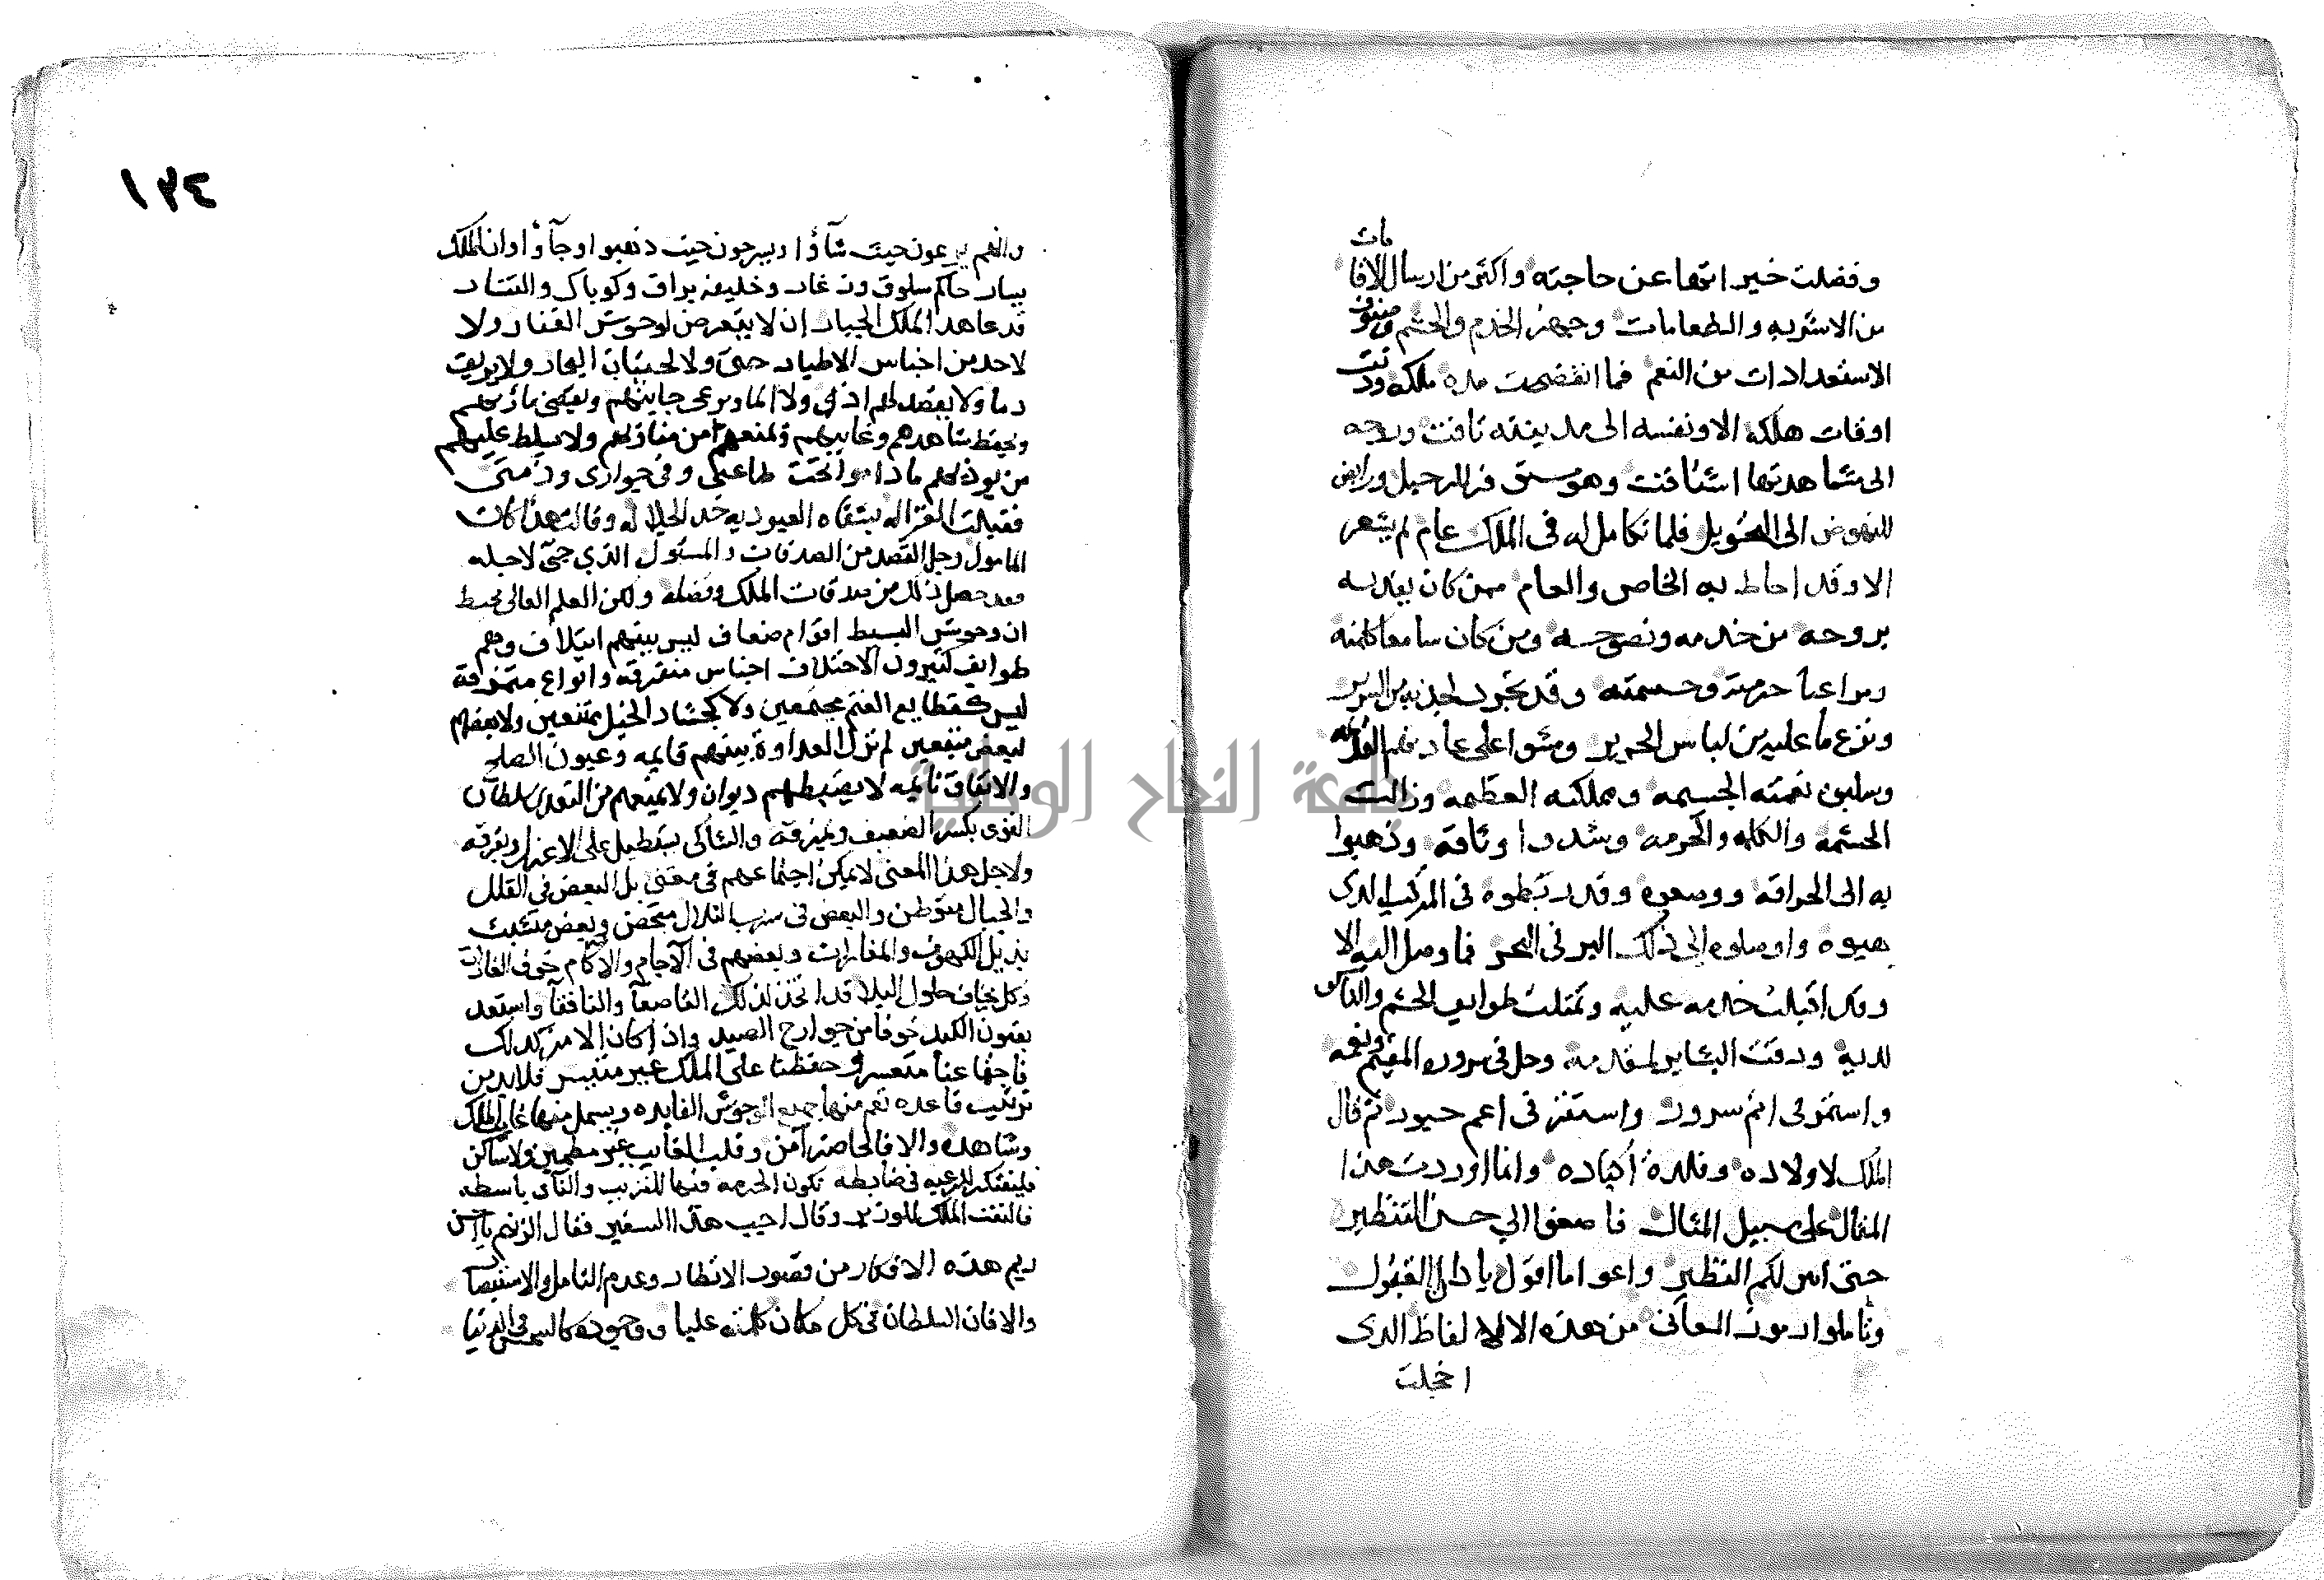 وفضلت خير اتمها عن حاجته واكثر من ارسال الاقامات
من الاشربه والطعامات وجهز الخدم والحشم وصنوف
الاستعدادات من النعم فما انقضت مده ملكه ودنت
اوقات هلكه الا ونفسه الى مدينته تاقت وروحه
الى مشاهدتها اشتاقت وهو مستوفز للرحيل ورابض
للنهوض الى التحويل فلما تكامل له في الملك عام لم يشعر
الا وقد احاط به الخاص والعام ممن كان يفديه
بروحه من خدمه ونصوحه ومن كان سامعا كلمته
مراعيا حرمته وحشمته وقد تجرد لجذبه من السرير
ونزع ما عليه من لباس الحرير ومشوا على عادتهم القديمه
وسلبوه نعمته الجسيمه ومملكته العظيمه وزالت
الحشمه والكلمه والحرمه وشددوا وثاقه وذهبوا
به الى الحراقه ووضعوه وقد ربطوه في المركب الذى
هيوه واوصلوه الى ذلك البر في البحر فما وصل اليه الا
وقد اقبلت خدمه عليه وتمثلت طوايف الحشم والناس
لديه ودقت البشاير لمقدمه وحل في سروره المقيم ونعمه
واستمر في اتم سرور واستقر في اعم حبور ثم قال
الملك لاولاده وفلذة اكباده وانما اوردت هذا
المثال على سبيل المثال فاصغوا الى حسن التنظير
حتى ابين لكم النظير واعوا ما اقول باذان القبول
وتاملوا رموز المعاني من هذه الالفاظ الذى
اخجلت
١٣٤
والغنم يرعون حيث شآؤا ويسرحون حيث ذهبوا وجآؤا وان الملك
يسار حاكم سلوق وتغار وخليفه براق وكوباك والتتار
قد عاهد الملك الجبار ان لا يتعرض لوحوش القفار ولا
لاحد من اجناس الاطيار حتى ولا لحيتان البحار ولا يريق
دما ولا يقصد لهم اذى ولا الما ويرعى جانبهم ويعطى مآربهم
ويحفظ شاهدهم وغايبهم ويمنعهم من منازلهم ولا يسلط عليهم
من يوذيهم ما داموا تحت طاعتى وفي جوارى وذمتى
فقبلت الغزاله بشفاه العبوديه خد الجلاله وقالت هذا كان
المامول وجل القصد من الصدقات والمسئول الذي جئ لاجله
فقد حصل ذلك من صدقات الملك وفضله ولكن العلم العالى محيط
ان وحوش البسيط اقوام ضعاف ليس بينهم ايتلاف وهم
طوايف كثيرون الاختلاف اجناس متفرقة وانواع متمزقة
ليس كقطايع الغنم مجتمعين ولا كجشار الخيل ممتنعين ولا بعضهم
لبعض متبعين لم تزل العداوة بينهم قايمه وعيون الصلح
والاتفاق نايمه لا يضبطهم ديوان ولا يمنعهم من التعدى سلطان
القوى يكسر الضعيف ويمزقه والشاكى يستطيل على الاعزل ويفرقه
ولاجل هذا المعنى لا يمكن اجتماعهم في مغنى بل البعض في القلل
والجبال متوطن والبعض في التلال متحصن وبعض متشبث
بذيل الكهوف والمغارات وبعضهم في الآجام والآكام خوف الغارات
وكل يخاف حلول البلا قد اتخذ لذلك القاصعآ والنافقآ واستعد
بفنون الكيد خوفا من جوارح الصيد واذا كان الامر كذلك
فاجتماعنا متعسر وحفظنا على الملك غير متيسر فلا بد من
ترتيب قاعده تعم منها جميع الوحوش الفايده ويشمل منها غايب الملك
وشاهده والا فالحاضر آمن وقلب الغايب غير مطمين ولا ساكن
فليفتكر للرعيه في ضابطه تكون الحرمه فيها للقريب والنآى باسطه
فالتفت الملك للوزير وقال اجيب هذا السفير فقال الزنيم يا احسن
ريم هذه الافكار من قصور الانظار وعدم التامل والاستبصار
والا فان السلطان في كل مكان كلمته عليا ووجوده كالشمس في الدنيا
جامعة النجاح الوطنية